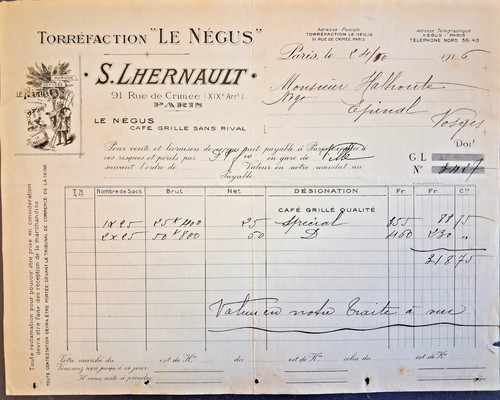 TORRÉFACTION "LE NÉGUS"
Adresse Postale
TORRÉFACTION LE NÉGUS
91, RUE DE CRIMÉE, PARIS
Adresse Télégraphique
NÉGUS - PARIS
TÉLÉPHONE NORD 56-40
Paris, le 1916
MARQUE
LE NÉGUS
S. LHERNAULT
91 Rue de Crimée (XIXe Arrt)
PARIS
Monsieur
Épinal
Vosges
LE NÉGUS
CAFÉ GRILLÉ SANS RIVAL
Doit
Pour vente et livraison de ce qui suit payable à Paris
vos risques et périls par en gare de
suivant l'ordre de Valeur en notre mandat au
Payable:
GL
No
TN Nombre de Sacs Brut Net DÉSIGNATION Fr. Fr. Cts
CAFÉ GRILLÉ QUALITÉ
1 x 25 25 K 400 25 Spécial 355 88 75
2 x 25 50 K 800 50 D 460 230 "
318 75
Valeur en notre traite à vue
Votre marché du est de Kos du est de Kos celui du est de Kos
Vous avez reçu jusqu'à ce jour
Il vous reste à prendre
Toute réclamation pour pouvoir être prise en considération
devra être faite dès réception de la marchandise
TOUTE CONTESTATION DEVRA ÊTRE PORTÉE DEVANT LE TRIBUNAL DE COMMERCE DE LA SEINE